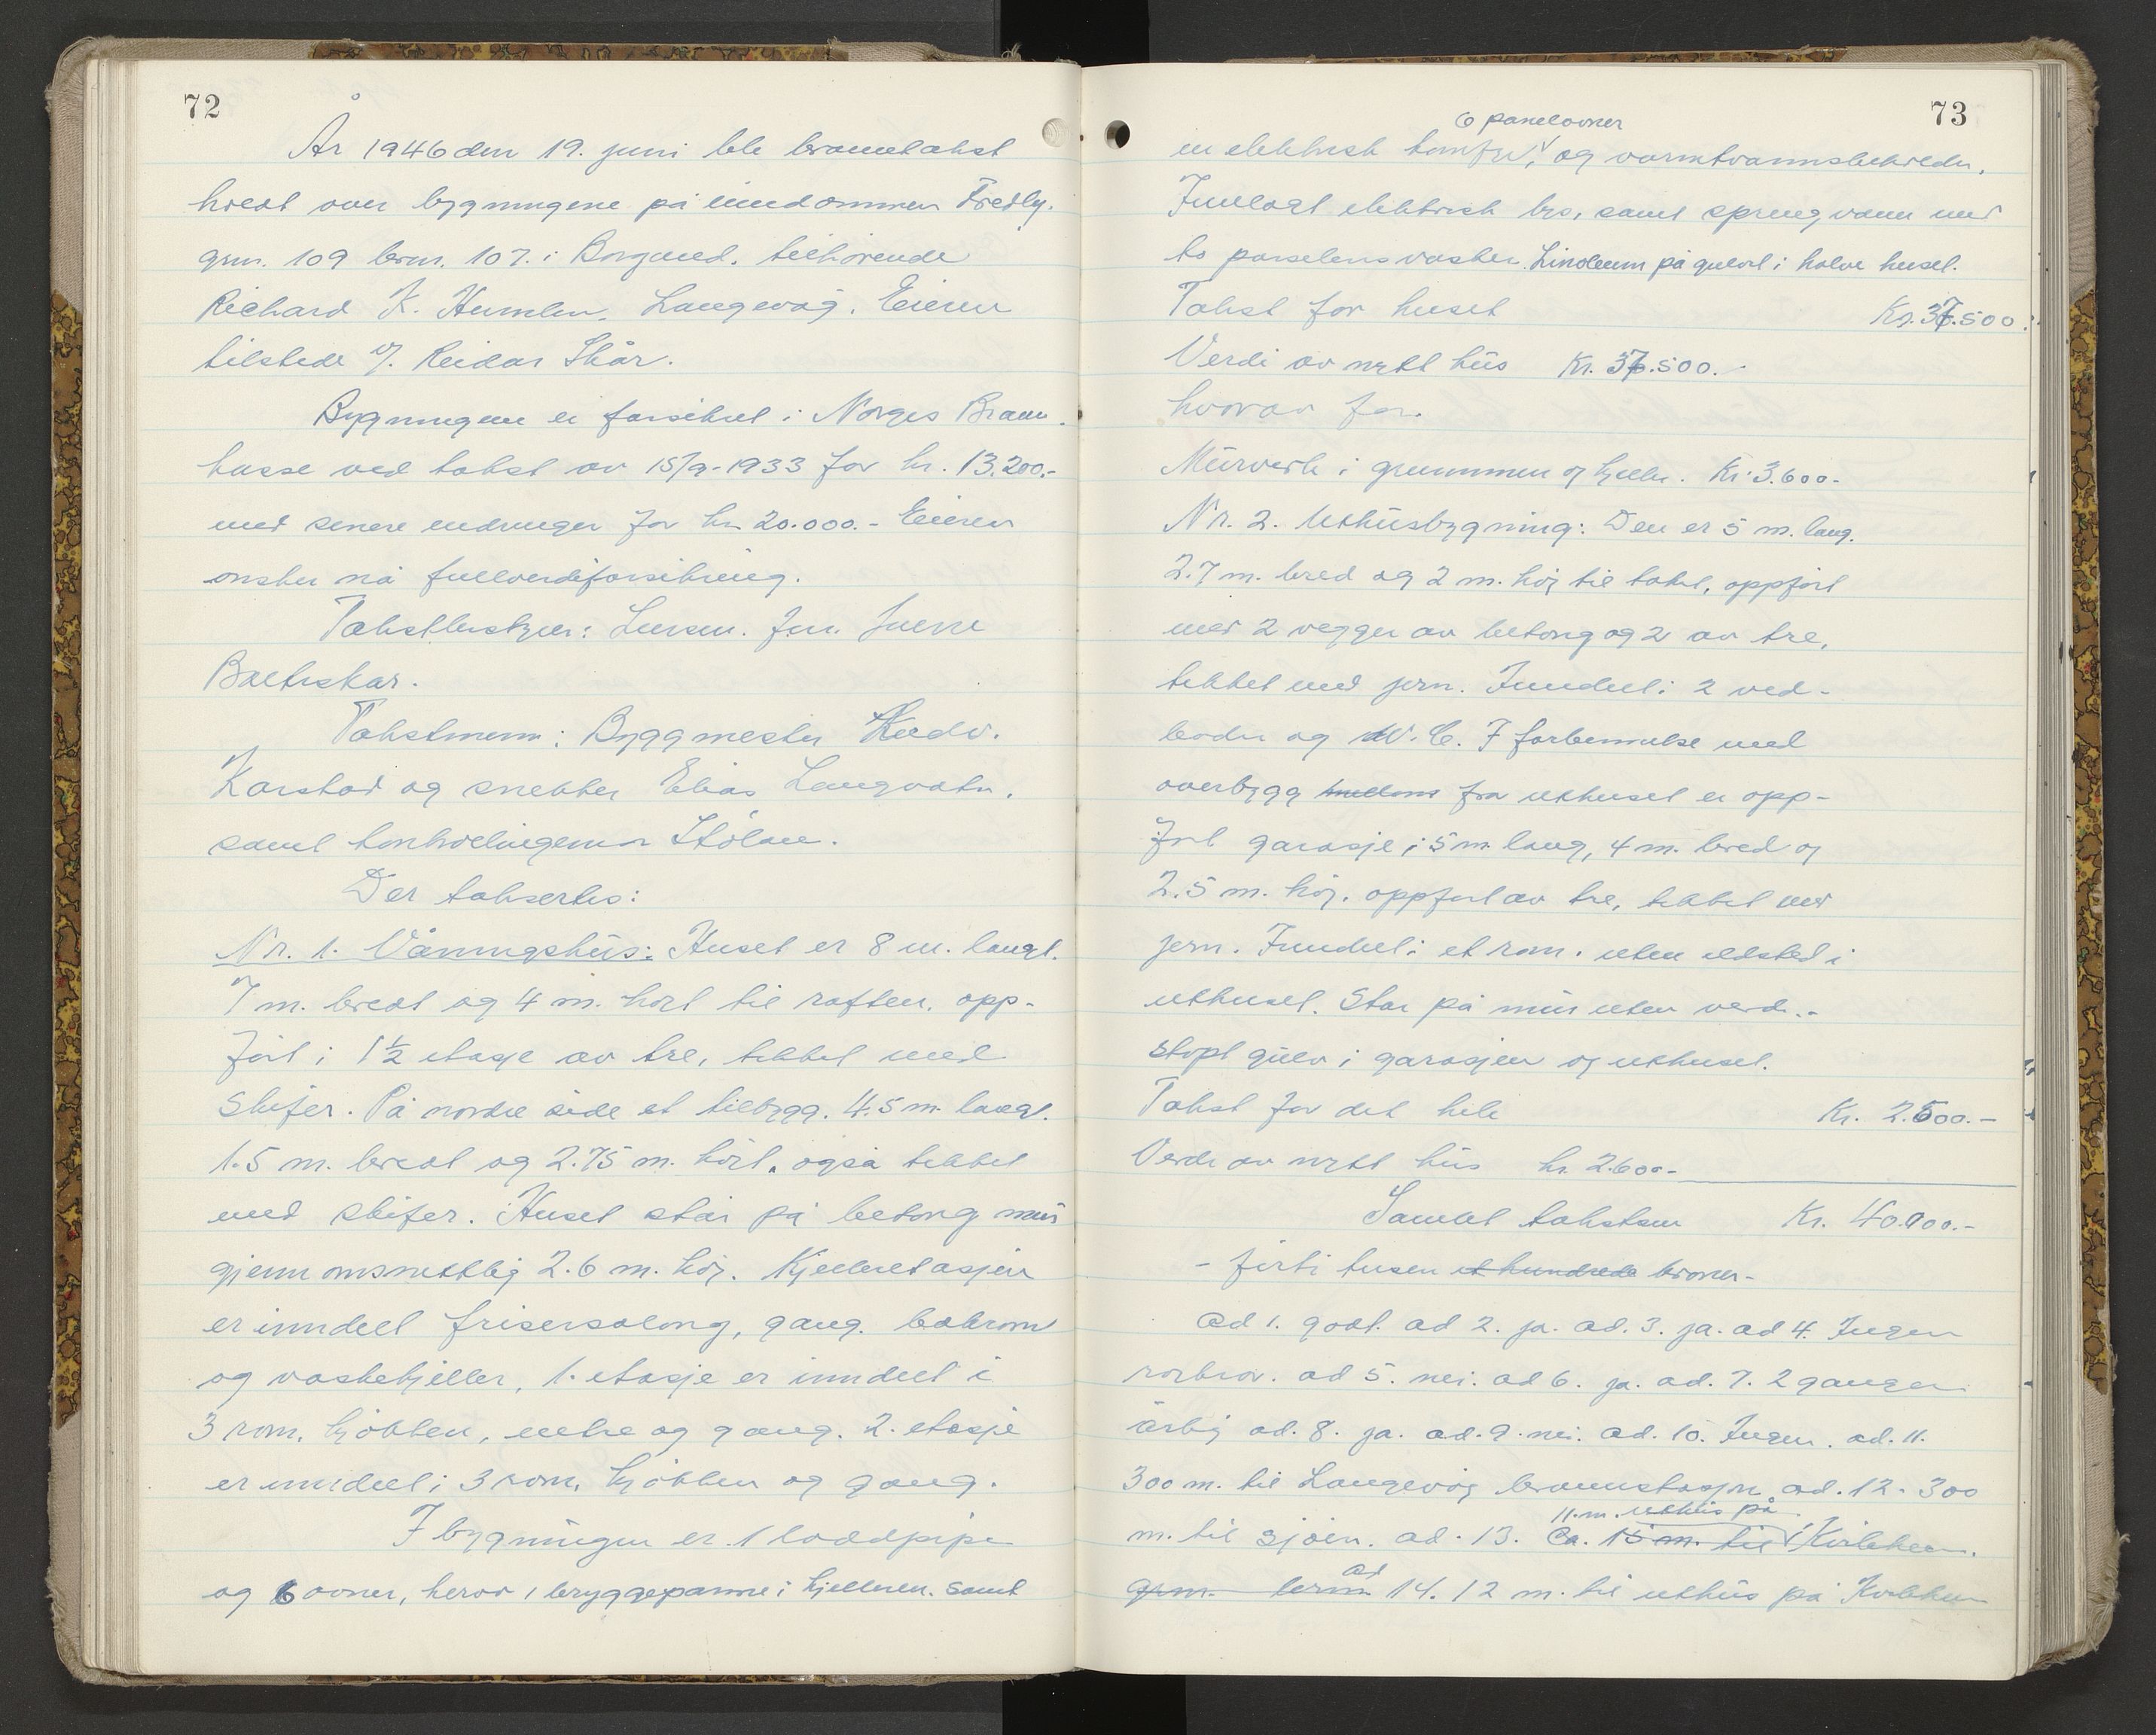 72
År 1946 den 19. juni ble branntakst
holdt over bygningene på eiendommen Fredly.
grn. 109 brn. 107. i Borgund. tilhörende
Richard K. Humlen. Langevåg. Eieren
tilstede v/. Reidar Skår.
Bygningene er forsikret i Norges Brann-
kasse ved takst av 15/9-1933 for kr. 13.200.-
med senere endringer for kr. 20.000.- Eieren
onsker nå fullverdiforsikring.
Takstbestyrer: Lensm. Jon. Sverre
Baltiskar.
Takstmenn: Byggmester Ludv.
Karstad og snekker Elias Langvatn.
samt kontrollingeniör Stölan.
Der taksertes:
Nr. 1. Våningshus: Huset er 8 m. langt.
7 m. bredt og 4 m. höit til raften. opp-
fört i 1½ etasje av tre, tekket med
skifer. På nordre side et tilbygg. 4.5 m. langt.
1.5 m. bredt og 2.75 m. höit. også tekket
med skifer. Huset står på betong mur
gjennomsnittlig 2.6 m. höy. Kjelleretasjen
er inndelt frisersalong, gang. bakrom
og vaskekjeller, 1. etasje er inndelt i
3 rom. kjökken, entre og gang. 2. etasje
er inndelt i 3 rom. kjökken og gang.
I bygningen er 1 loddpipe
og 6 ovner, herav 1 bryggepanne i kjelleren. samt
73
6 panelovner
en elektrisk komfyr, og varmtvannsbeholder.
Innlagt elektrisk lys, samt springvann med
to porselensvasker. Linoleum på gulvet i halve huset.
Takst for huset Kr. 37.500.-
Verdi av nytt hus Kr. 37.500.-
hvorav for.
Murverk i grunnmur og kjeller. Kr. 3.600.-
Nr. 2. Uthusbygning: Den er 5 m. lang.
2.7 m. bred og 2 m. höj til taket, oppfört
med 2 vegger av betong og 2 av tre,
tekket med jern. Inndeelt: 2 ved-
boder og W.C. I forbinnelse med
overbygg mellom fra uthuset er opp-
fört garasje; 5 m. lang, 4 m. bred og
2.5 m. höj. oppfört av tre, tekket med
jern. Inndeelt: et rom. uten ildsted i
uthuset. Står på mur uten verdi.-
støpt gulv i garasjen og uthuset.
Takst for det hele Kr. 2.500.-
Verdi av nytt hus kr. 2.600.-
Samlet takstsum Kr. 40.000.-
- förti tusen et hundrede kroner-
ad 1. godt. ad 2. ja. ad. 3. ja. ad 4. Ingen
rorbrov. ad 5. nei. ad 6. ja. ad. 7. 2 ganger
årlig ad. 8. ja. ad. 9. nei. ad. 10. Ingen. ad. 11.
300 m. til Langevåg brannstasjon ad. 12. 300
11. m. uthus på
m. til sjöen. ad. 13. Ca. 15 m. til
ad
grn. brnr. 14. 12 m. til uthus på